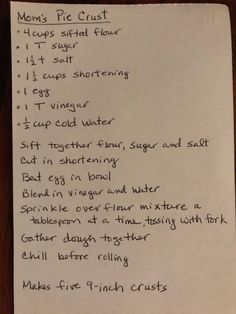 Mom's Pie Crust
• 4 cups sifted flour
• 1 T sugar
• 1½ t salt
• 1½ cups shortening
• 1 egg
• 1 T vinegar
• ½ cup cold water
Sift together flour, sugar and salt
Cut in shortening
Beat egg in bowl
Blend in vinegar and water
Sprinkle over flour mixture a
tablespoon at a time, tossing with fork
Gather dough together
Chill before rolling
Makes five 9-inch crusts